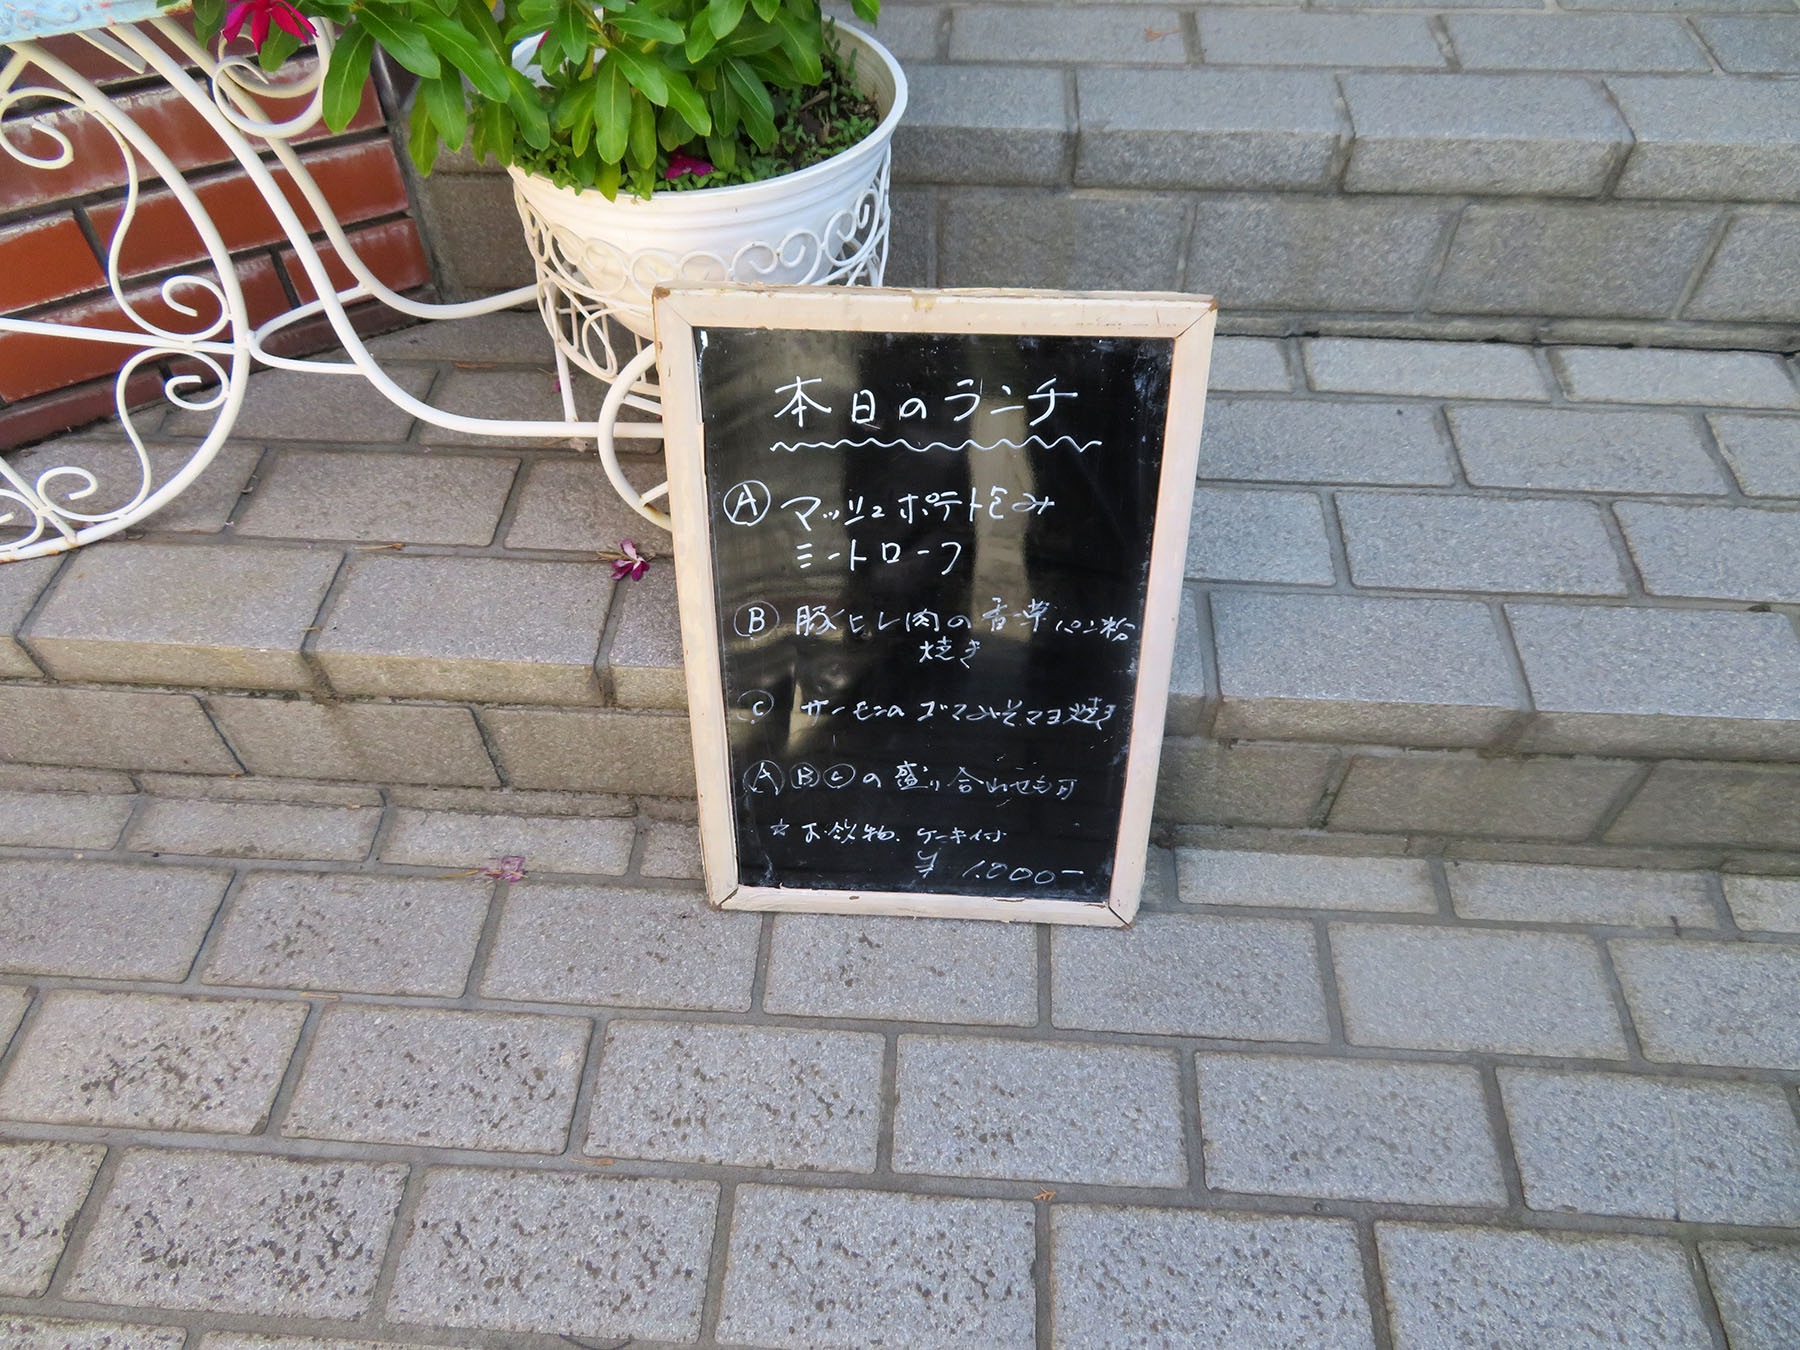 本日のランチ
Ⓐ マッシュポテト包み
ミートローフ
Ⓑ 豚ヒレ肉の香草パン粉
焼き
Ⓒ サーモンのゴマみそマヨ焼き
ⒶⒷⒸの盛り合わせも可
☆ お飲物、ケーキ付
¥ 1,000-